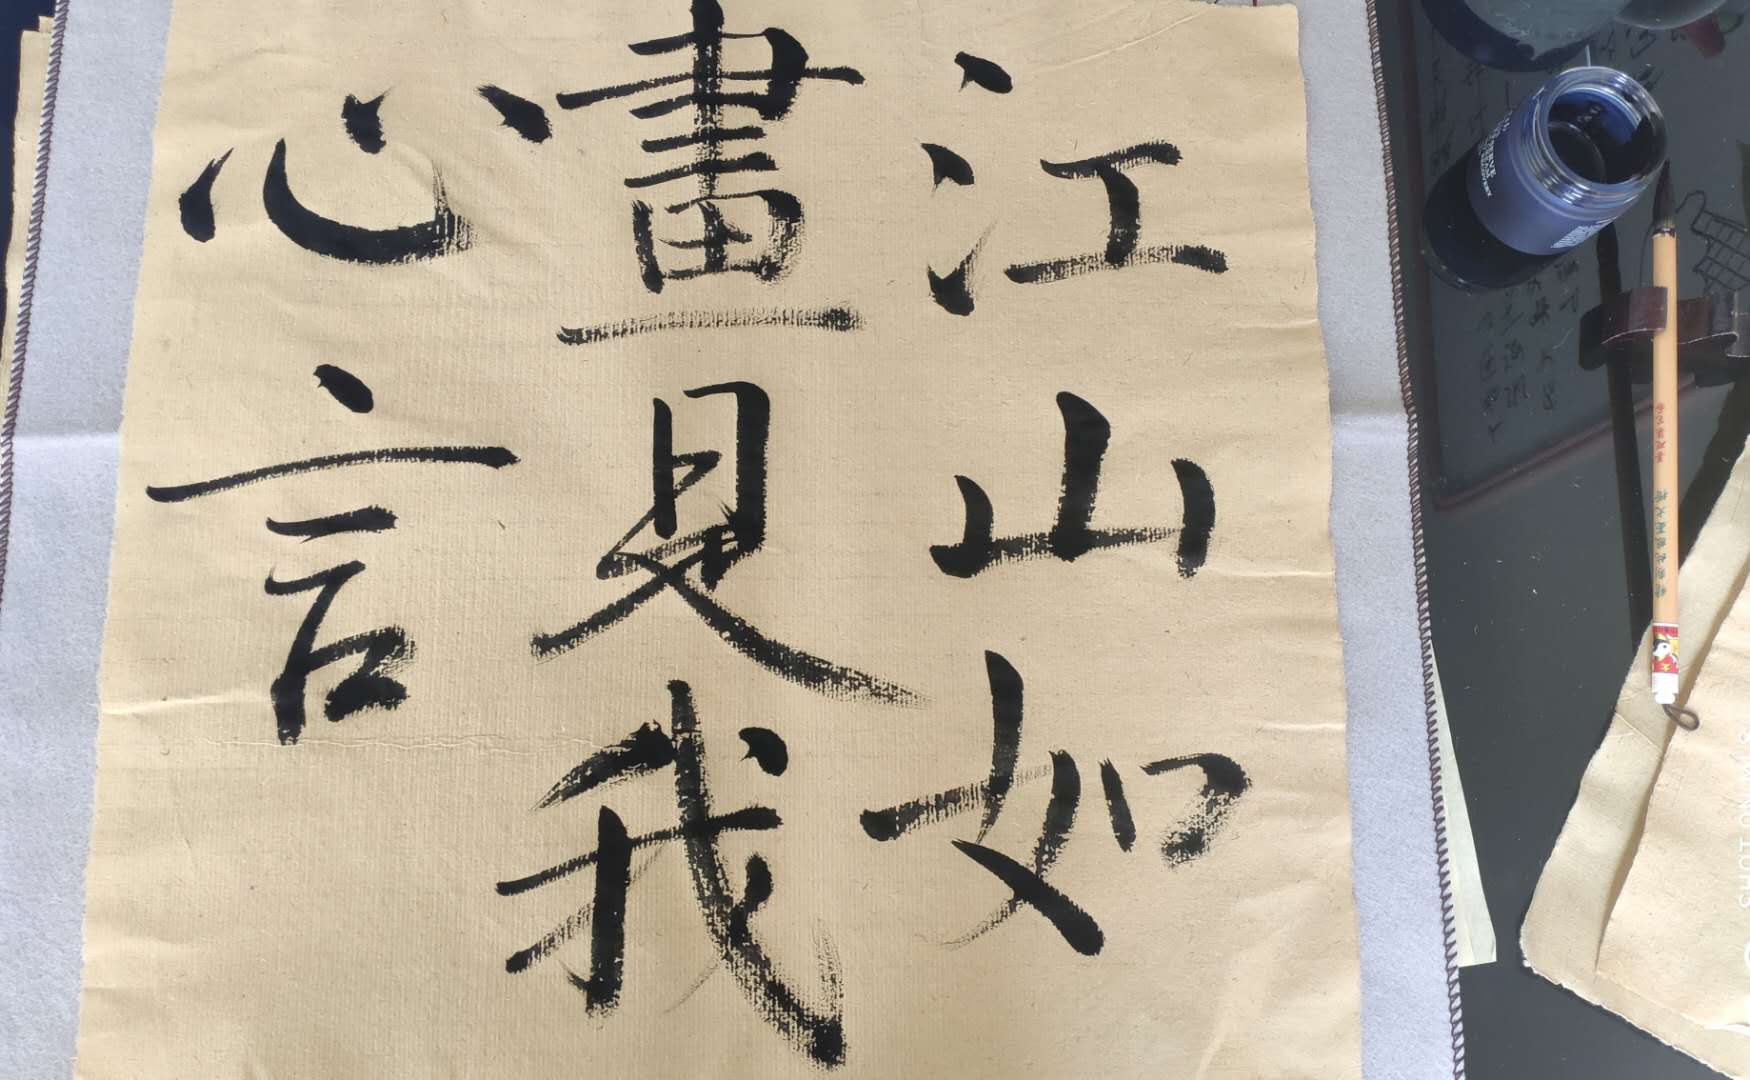 江山如
畫見我
心言
SHOT ON